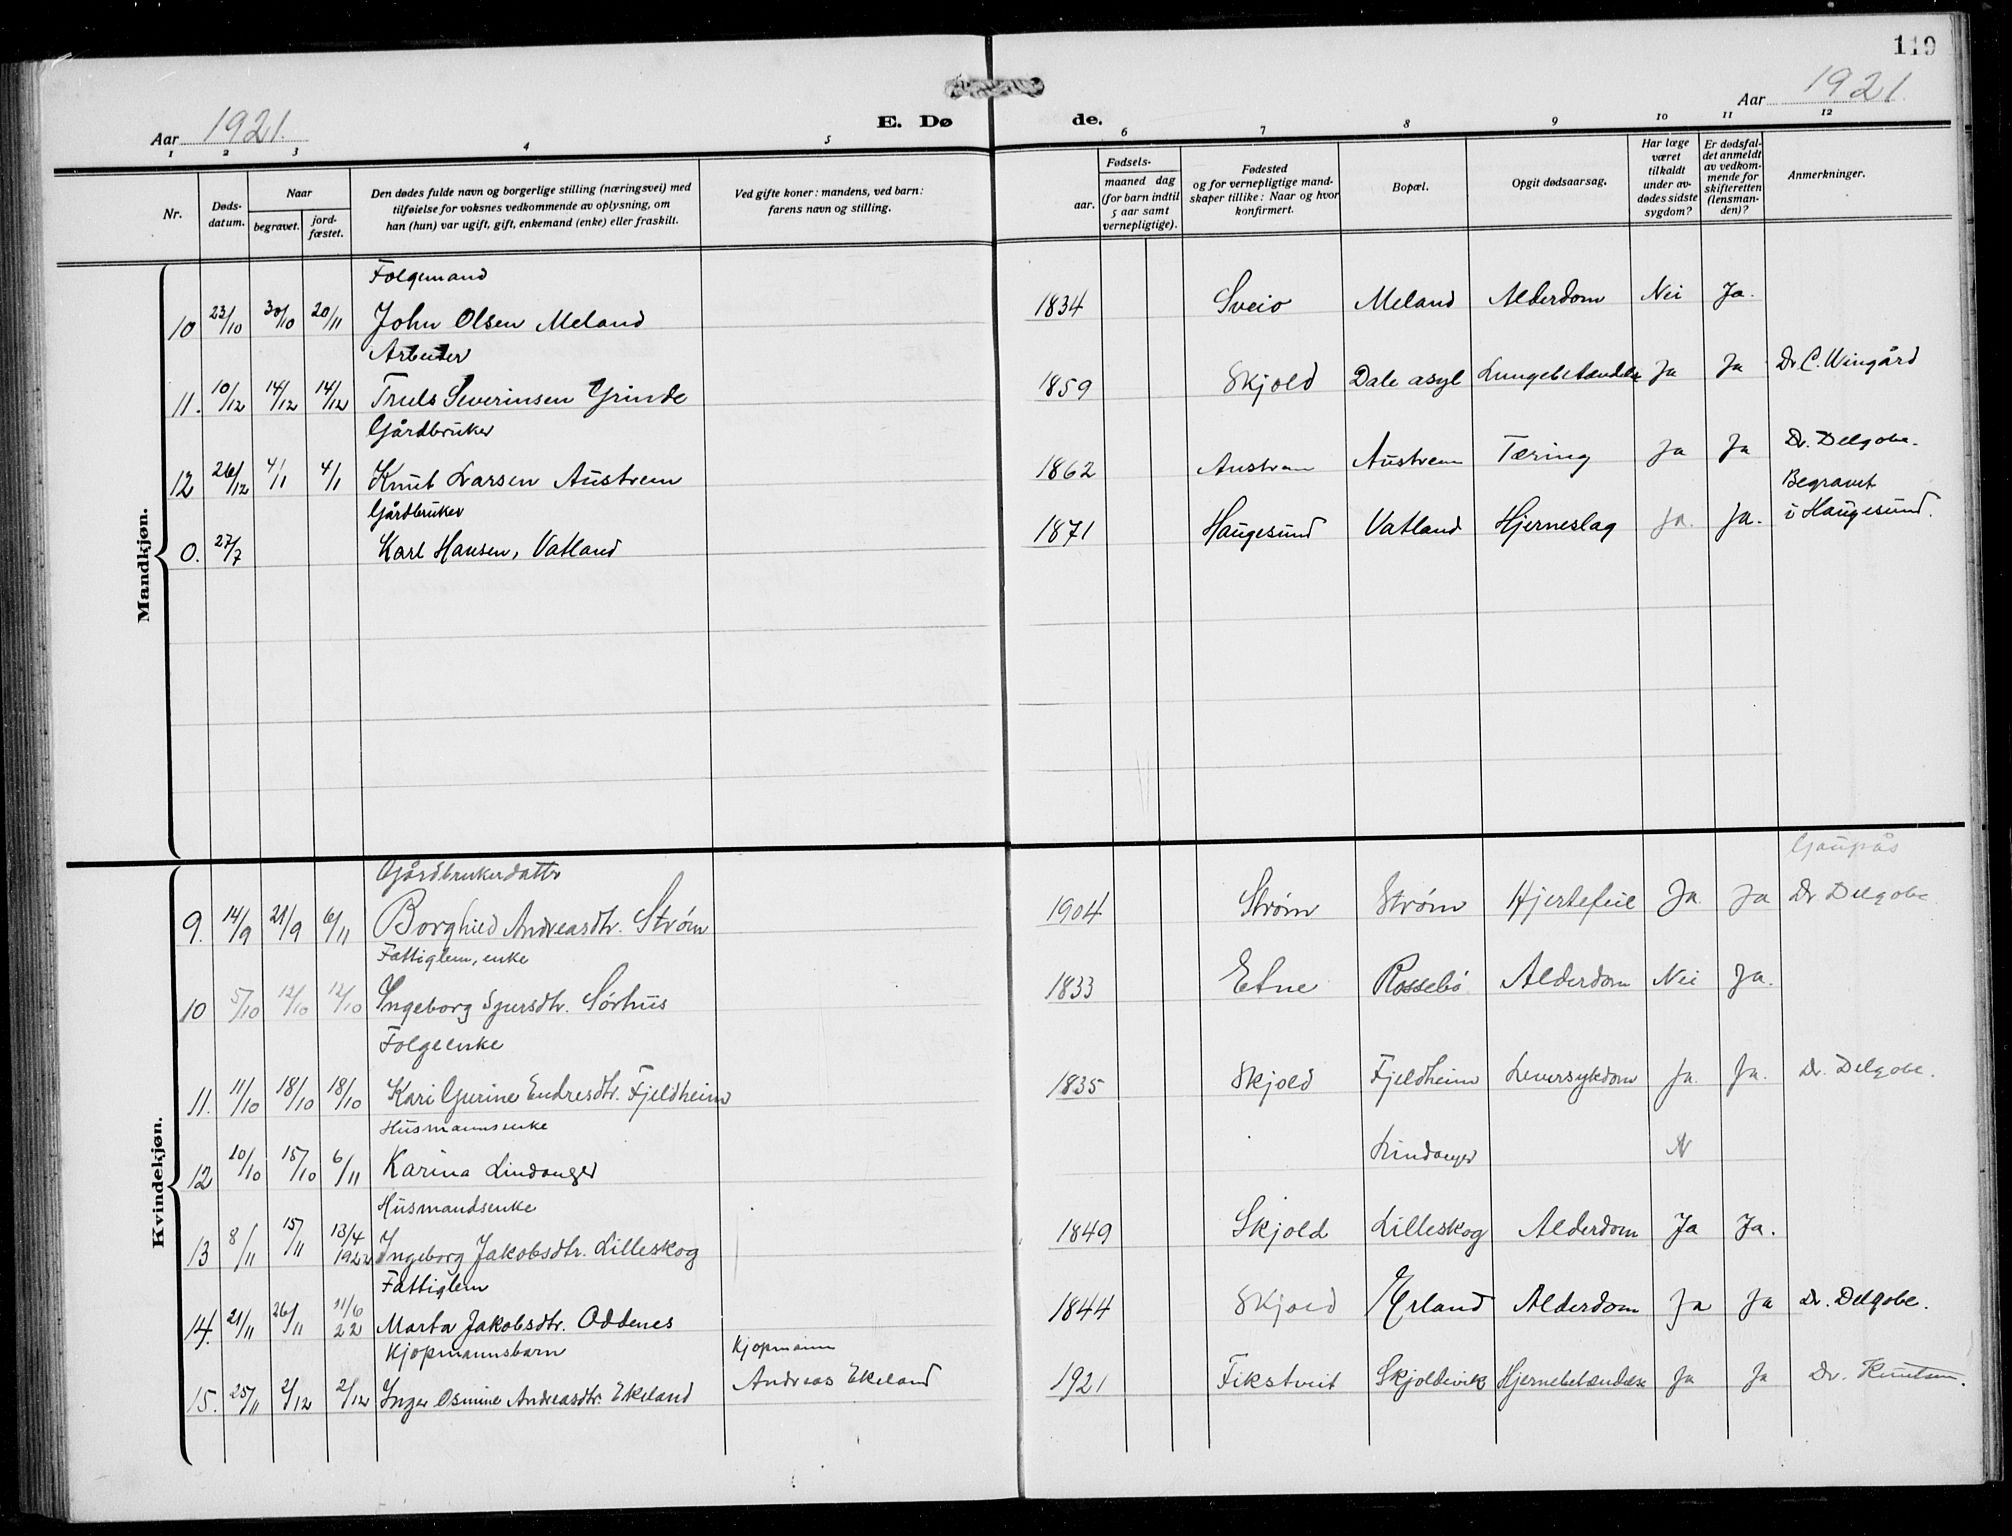 119
Aar 1921.
E. Dø
de.
Aar 1921.
1 2 3 4 5 6 7 8 9 10 11 12
Nr.
Døds-
datum.
Naar
begravet.
jord-
fæstet.
Den dødes fulde navn og borgerlige stilling (næringsvei) med
tilføielse for voksnes vedkommende av oplysning, om
han (hun) var ugift, gift, enkemand (enke) eller fraskilt.
Ved gifte koner: mandens, ved barn:
farens navn og stilling.
Fødsels-
aar.
maaned dag
(for barn indtil
5 aar samt
vernepligtige).
Fødested
og for vernepligtige mand-
skaper tillike: Naar og hvor
konfirmert.
Bopæl.
Opgit dødsaarsag.
Har læge
været
tilkaldt
under av-
dødes sidste
sygdom?
Er dødsfal-
det anmeldt
av vedkom-
mende for
skifteretten
(lensman-
den)?
Anmerkninger.
Mandkjøn.
Folgemand
10 23/10 30/10 20/11 John Olsen Meland 1834 Sveio Meland Alderdom Nei Ja.
Arbeider
11. 10/12 14/12 14/12 Truls Severinsen Grinde 1859 Skjold Dale asyl Lungebetændelse Ja Ja Dr. C. Wingård
Gårdbruker
12 26/12 4/1 4/1 Knut Larsen Austrem 1862 Austrem Austrem Tæring Ja Ja Dr. Delgobe.
Gårdbruker
Begravet
0. 27/7 Karl Hansen, Vatland 1871 Haugesund Vatland Hjerneslag Ja. Ja. i Haugesund.
Kvindekjøn.
Gårdbrukerdatter
Gaupås
9. 14/9 21/9 6/11 Borghild Andreasdtr. Strøm 1904 Strøm Strøm Hjertefeil Ja. Ja Dr Delgobe.
Fattiglem, enke
10 5/10 12/10 12/10 Ingeborg Sjursdtr. Sørhus 1833 Etne Rossebø Alderdom Nei Ja.
Folgeenke
11. 11/10 18/10 18/10 Kari Gurine Endresdtr. Fjeldheim 1835 Skjold Fjeldheim Leversykdom Ja. Ja. Dr. Delgobe.
Husmannsenke
12 10/10 15/10 6/11 Karina Lindanger Lindanger N
Husmandsenke
13 8/11 15/11 13/4 1922 Ingeborg Jakobsdtr. Lilleskog 1849 Skjold Lilleskog Alderdom Ja Ja.
Fattiglem
14. 21/11 26/11 11/6 22 Marta Jakobsdtr. Oddenes 1844 Skjold Erland Alderdom Ja Ja Dr. Delgobe.
Kjøpmannsbarn Kjøpmann
15. 25/11 2/12 2/12 Inger Osmine Andreasdtr. Ekeland Andreas Ekeland 1921 Fikstveit Skjoldevik Hjernebetændelse Ja Ja Dr. Knutsen.